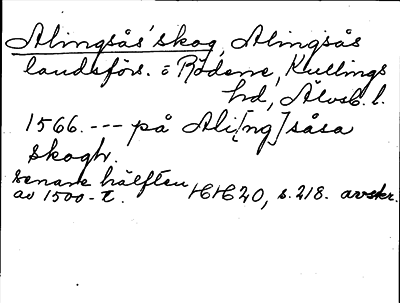 Alingsås' skog, Alingsås
landsförs. o Rödene, Kullings
hd, Älvsb. l.
1566. --- på Ali[ng]såsa
skogh.
senare hälften
av 1500-t. HH20, s. 218. avskr.